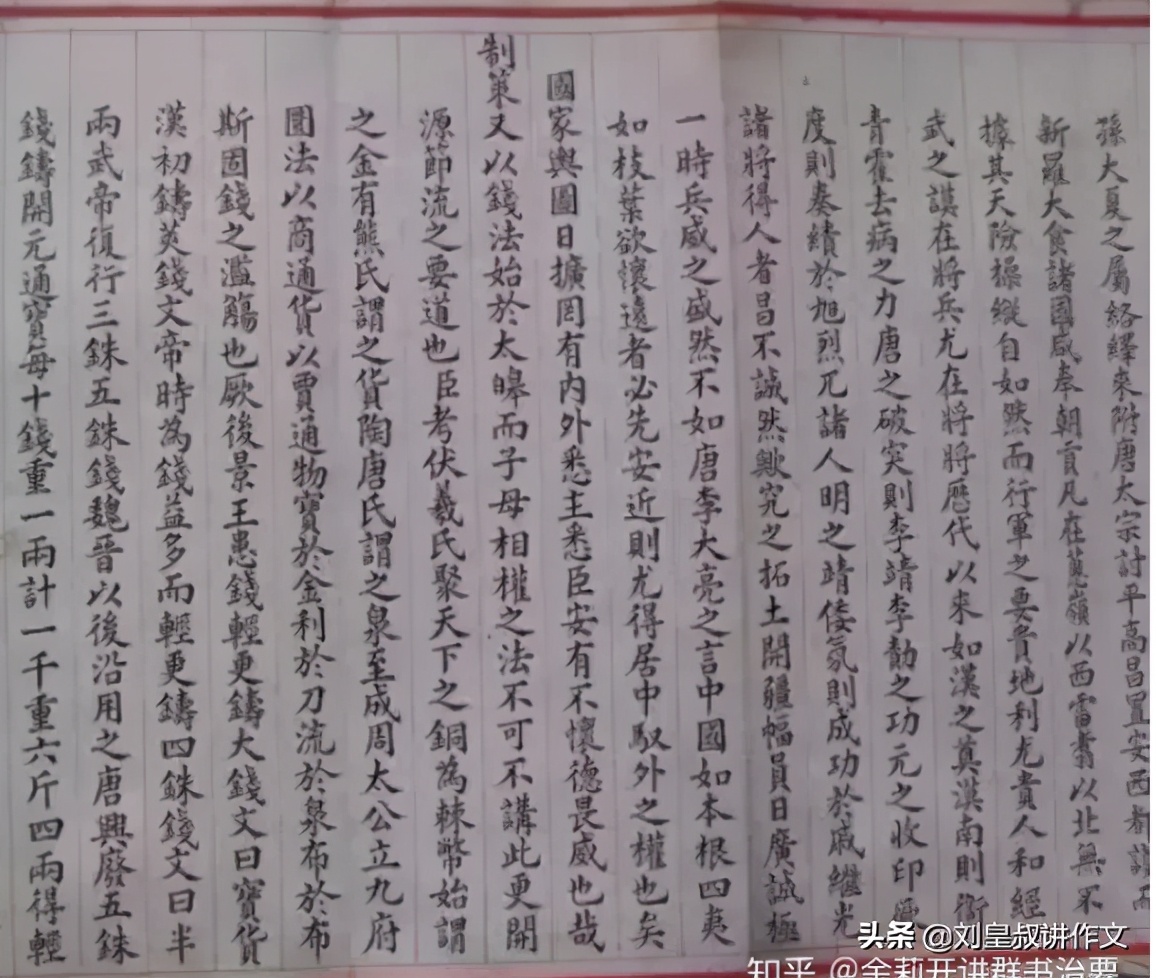 孫大夏之屬絡繹來附唐太宗討平高昌置安西都護而
新羅大食諸國咸奉朝貢凡在蔥嶺以西雷翥以北無不
據其天險操縱自如然而行軍之要貴地利尤貴人和經
武之謨在將兵尤在將將歷代以來如漢之奠漠南則衛
青霍去病之力唐之破突則李靖李勣之功元之收印
度則奏績於旭烈兀諸人明之靖倭氛則成功於戚繼光
諸將得人者昌不誠然歟究之拓土開疆幅員日廣誠極
一時兵威之盛然不如唐李大亮之言中國如本根四夷
如枝葉欲懷遠者必先安近則尤得居中馭外之權也矣
國家輿圖日擴罔有內外悉主悉臣安有不懷德畏威也哉
制策又以錢法始於太皞而子母相權之法不可不講此更開
源節流之要道也臣考伏羲氏聚天下之銅為棘幣始謂
之金有熊氏謂之貨陶唐氏謂之泉至成周太公立九府
圜法以商通貨以賈通物寶於金利於刀流於泉布於布
斯固錢之濫觴也厥後景王患錢輕更鑄大錢文曰寶貨
漢初鑄莢錢文帝時為錢益多而輕更鑄四銖錢文曰半
兩武帝復行三銖五銖錢魏晉以後沿用之唐興廢五銖
錢鑄開元通寶每十錢重一兩計一千重六斤四兩得輕
头条 @刘皇叔讲作文
知乎 @金莉开讲群书治要